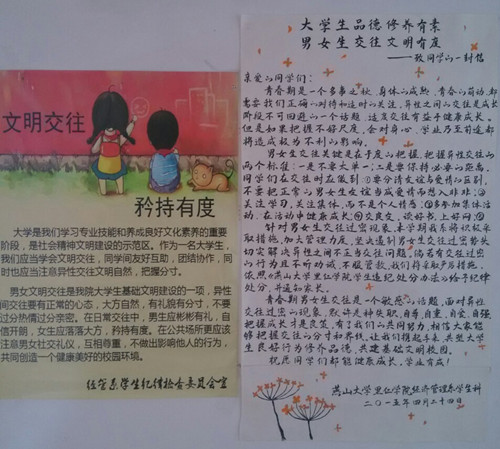 文明交往
矜持有度
大学是我们学习专业技能和养成良好文化素养的重要
阶段，是社会精神文明建设的示范区。作为一名大学生，
我们应当学会文明交往，同学间友好互助，团结协作，同
时也应当注意异性交往文明自然，把握分寸。
男女文明交往是我院大学生基础文明建设的一项，异性
间交往要有正常的心态，大方自然，有礼貌有分寸，不要
过分热情过分亲密。在日常交往中，男生应彬彬有礼，自
信开朗，女生应落落大方，矜持有度。在公共场所更应该
注意男女社交礼仪，互相尊重，不做出影响他人的行为，
共同创造一个健康美好的校园环境。
经管系学生纪律检查委员会宣
大学生品德修养有素
男女生交往文明有度
——致同学的一封信
亲爱的同学们：
青春期是一个多事之秋，身体的成熟，青春的萌动，都
需要我们正确的对待和适时的关注，异性之间的交往是成长
阶段不可回避的一个话题，适度交往有益于健康成长。
但是如果把握不好尺度，会对身心、学业乃至前途都
将造成极为不利的影响。
男女生交往关键是在于度的把握，把握异性交往的
两个标准：一是不要太单一，二是要保持必要的距离。
同学们在交往时应做到①要分清友谊与爱情的区别，
不要把正常的男女生友谊当成爱情而想入非非；②
关注学习，关注集体，而不是个人情感；③多参加集体活
动，在活动中健康成长；④交良友，读好书，上好网。
针对男女生交往过密现象，本学期我系将积极采
取措施，加大管理力度，坚决遏制男女生交往过密势头
切实解决异性生间不正当交往问题，倘若有交往过密
的行为且不听劝诫，不服管教，我们将采取严厉措施，
依照《燕山大学里仁学院学生违纪处分办法》给予纪律
处分，并通知家长。
青春期男女生交往是一个敏感的话题，面对异性
交往过密的现象，默许是种失职，自尊、自重、自爱、自强
把握成长才是良策，有了我们的共同努力，相信大家能
够把握交往的分寸和界线，让我们携起手来，共塑大学
生良好行为修养品德，共建基础文明校园。
祝愿同学们都能健康成长，学业有成！
燕山大学里仁学院经济管理系学生科
二〇一五年四月二十四日